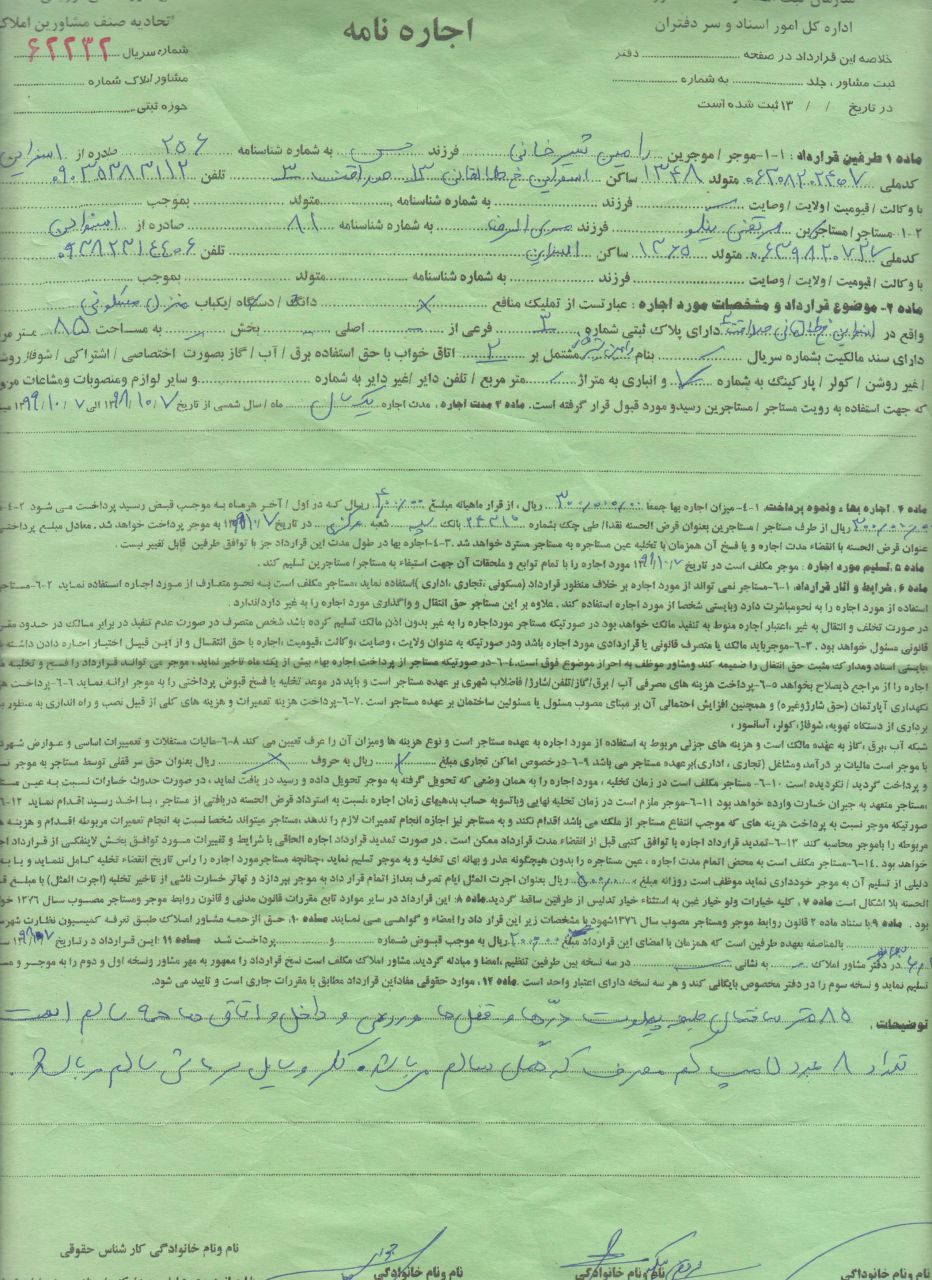 اداره کل امور اسناد و سر دفتران
اجاره نامه
اتحادیه صنف مشاورین املاک
شماره سریال ۶۲۲۳۲
خلاصه این قرارداد در صفحه دفتر
مشاور املاک شماره
ثبت مشاور ، جلد به شماره
حوزه ثبتی
در تاریخ / / ۱۳ ثبت شده است
ماده ۱ طرفین قرارداد : ۱-۱- موجر / موجرین رامین شیرخانی فرزند به شماره شناسنامه ۲۵۶ صادره از اسفراین
کدملی متولد ۱۳۴۸ ساکن اسفراین خ طالقانی ۱۳ صداقت ۳ تلفن ۰۹۰۳۵۳۸۳۱۱۲
با وکالت / قیومیت / ولایت / وصایت فرزند به شماره شناسنامه متولد بموجب
۱-۲- مستاجر/مستاجرین مرتضی فرزند به شماره شناسنامه ۸۱ صادره از اسفراین
کدملی متولد ۱۳۶۵ ساکن اسفراین تلفن
با وکالت / قیومیت / ولایت / وصایت فرزند به شماره شناسنامه متولد بموجب
ماده ۲- موضوع قرارداد و مشخصات مورد اجاره : عبارتست از تملیک منافع × دانگ / دستگاه /یکباب منزل مسکونی
واقع در اسفراین خ طالقانی صداقت ۳ دارای پلاک ثبتی شماره ۳ فرعی از اصلی بخش به مساحت ۸۵ متر مربع
دارای سند مالکیت بشماره سریال بنام رامین مشتمل بر ۲ اتاق خواب با حق استفاده برق / آب / گاز بصورت اختصاصی / اشتراکی / شوفاژ روشن
/ غیر روشن / کولر / پارکینگ به شماره و انباری به متراژ متر مربع / تلفن دایر /غیر دایر به شماره و سایر لوازم ومنصوبات ومشاعات مربوطه
که جهت استفاده به رویت مستاجر / مستاجرین رسیدو مورد قبول قرار گرفته است. ماده ۳ مدت اجاره . مدت اجاره یک سال ماه / سال شمسی از تاریخ ۱۳۹۸/۱۰/۷ الی ۱۳۹۹/۱۰/۷
ماده ۴ . اجاره بها ، ونحوه پرداخت. ۱-۴- میزان اجاره بها جمعا ریال ، از قرار ماهیانه مبلغ ریال که در اول / آخر هرماه به موجب قبض رسید پرداخت می شود ۲-۴-
ریال از طرف مستاجر / مستاجرین بعنوان قرض الحسنه نقدا/ طی چک بشماره ۲۴۳۱۵ بانک سپه شعبه مرکزی در تاریخ به موجر پرداخت خواهد شد . معادل مبلغ پرداختی
عنوان قرض الحسنه با انقضاء مدت اجاره و یا فسخ آن همزمان با تخلیه عین مستاجره به مستاجر مسترد خواهد شد .۳-۴-اجاره بها در طول مدت این قرارداد جز با توافق طرفین قابل تغییر نیست .
ماده ۵.تسلیم مورد اجاره : موجر مکلف است در تاریخ مورد اجاره را با تمام توابع و ملحقات آن جهت استیفاء به مستاجر/ مستاجرین تسلیم کند.
ماده ۶ . شرایط و آثار قرارداد. ۱-۶-مستاجر نمی تواند از مورد اجاره بر خلاف منظور قرارداد (مسکونی ،تجاری ،اداری )استفاده نماید ،مستاجر مکلف است به نحو متعارف از مورد اجاره استفاده نماید ۲-۶-مستاجر
استفاده از مورد اجاره را به نحومباشرت دارد وبایستی شخصا از مورد اجاره استفاده کند . علاوه بر این مستاجر حق انتقال و واگذاری مورد اجاره را به غیر دارد/ندارد .
در صورت تخلف و انتقال به غیر ،اعتبار اجاره منوط به تنفیذ مالک خواهد بود در صورتیکه مستاجر مورداجاره را به غیر بدون اذن مالک تسلیم کرده باشد شخص متصرف در صورت عدم تنفیذ در برابر مالک در حدود مقررات
قانونی مسئول خواهد بود . ۳-۶-موجرباید مالک یا متصرف قانونی یا قراردادی مورد اجاره باشد ودر صورتیکه به عنوان ولایت ، وصایت ،وکالت ،قیومیت ،اجاره با حق انتقال و از این قبیل اختیار اجاره دادن داشته
بایستی اسناد ومدارک مثبت حق انتقال را ضمیمه کند ومشاور موظف به احراز موضوع فوق است.۴-۶-در صورتیکه مستاجر از پرداخت اجاره بهاء بیش از یک ماه تاخیر نماید ، موجر می تواند قرارداد را فسخ و تخلیه
اجاره را از مراجع ذیصلاح بخواهد ۵-۶-پرداخت هزینه های مصرفی آب / برق/گاز/تلفن/شارژ/ فاضلاب شهری بر عهده مستاجر است و باید در موعد تخلیه یا فسخ قبوض پرداختی را به موجر ارائه نماید ۶-۶-پرداخت
نگهداری آپارتمان (حق شارژوغیره) و همچنین افزایش احتمالی آن بر مبنای مصوب مسئول یا مسئولین ساختمان بر عهده مستاجر است .۷-۶-پرداخت هزینه تعمیرات و هزینه های کلی از قبیل نصب و راه اندازی به منظور
برداری از دستگاه تهویه، شوفاژ، کولر، آسانسور ،
شبکه آب ،برق ،گاز به عهده مالک است و هزینه های جزئی مربوط به استفاده از مورد اجاره به عهده مستاجر است و نوع هزینه ها ومیزان آن را عرف تعیین می کند ۸-۶-مالیات مستغلات و تعمییرات اساسی و عوارض
با موجر است مالیات بر درآمد ومشاغل (تجاری ، اداری)برعهده مستاجر می باشد ۹-۶-درخصوص اماکن تجاری مبلغ × ریال به حروف × ریال بعنوان حق سر قفلی توسط مستاجر به موجر
و پرداخت گردید / نکردیده است ۱۰-۶- مستاجر مکلف است در زمان تخلیه ، مورد اجاره را به همان وضعی که تحویل گرفته به موجر تحویل داده و رسید در یافت نماید ، در صورت حدوث خسارات نسبت به عین
مستاجر متعهد به جبران خسارت وارده خواهد بود ۱۱-۶-موجر ملزم است در زمان تخلیه نهایی وباتسویه حساب بدهیهای زمان اجاره ،نسبت به استرداد قرض الحسنه دریافتی از مستاجر ، با اخذ رسید اقدام نماید ۱۲-۶
صورتیکه موجر نسبت به پرداخت هزینه های که موجب انتفاع مستاجر از ملک می باشد اقدام نکند و به مستاجر نیز اجازه انجام تعمیرات لازم را ندهد ،مستاجر میتواند شخصا نسبت به انجام تعمیرات مربوطه اقدام و هزینه
مربوطه را باموجر محاسبه کند ۱۳-۶-تمدید قرارداد اجاره با توافق کتبی قبل از انقضاء مدت قرارداد ممکن است . در صورت تمدید قرارداد اجاره الحاقی با شرایط و تغییرات مورد توافق بخش لاینفکی از قرارداد
خواهد بود .۱۴-۶-مستاجر مکلف است به محض اتمام مدت اجاره ، عین مستاجره را بدون هیچگونه عذر و بهانه ای تخلیه و به موجر تسلیم نماید ،چنانچه مستاجرمورد اجاره را راس تاریخ انقضاء تخلیه کامل ننماید و یا به
دلیلی از تسلیم آن به موجر خودداری نماید موظف است روزانه مبلغ ریال بعنوان اجرت المثل ایام تصرف بعداز اتمام قرار داد به موجر بپردازد و تهاتر خسارت ناشی از تاخیر تخلیه (اجرت المثل) با مبلغ
الحسنه بلا اشکال است ماده ۷ . کلیه خیارات ولو خیار غبن به استثناء خیار تدلیس از طرفین ساقط گردید. ماده ۸: این قرارداد در سایر موارد تابع مقررات قانون مدنی و قانون روابط موجر ومستاجر مصوب سال ۱۳۷۶
بود . ماده ۹ با ستناد ماده ۲ قانون روابط موجر ومستاجر مصوب سال ۱۳۷۶ شهود با مشخصات زیر این قرار داد را امضاء و گواهی می نمایند ماده ۱۰. حق الزحمه مشاور املاک طبق تعرفه کمیسیون نظارت
بالمناصفه بعهده طرفین است که همزمان با امضای این قرارداد مبلغ ریال به موجب قبوض شماره و پرداخت شد ماده ۱۱ این قرارداد در تاریخ
در دفتر مشاور املاک به نشانی در سه نسخه بین طرفین تنظیم ،امضا و مبادله گردید. مشاور املاک مکلف است نسخ قرارداد را ممهور به مهر مشاور ونسخه اول و دوم را به موجر و
تسلیم نماید و نسخه سوم را در دفتر مخصوص بایگانی کند و هر سه نسخه دارای اعتبار واحد است .ماده ۱۲ . موارد حقوقی مفاداین قرارداد مطابق با مقررات جاری است و تایید می شود.
توضیحات . ۸۵ متر ساختمان طبقه پیلوت دربها و قفل ها ورودی و داخل و اتاق ها همه سالم است
تعداد ۸ عدد لامپ کم مصرف که همگی سالم می باشد. کلیه وسایل سرمایش سالم می باشد.
نام ونام خانوادگی کار شناس حقوقی
نام ونام خانوادگی
نام ونام خانوادگی
نام ونام خانوادگی